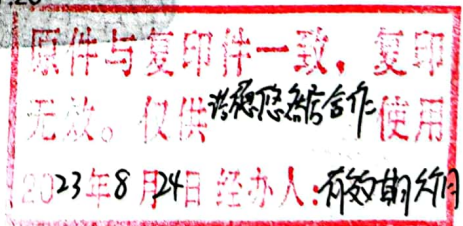 原件与复印件一致，复印
无效。仅供 合作使用
2023年8月24日 经办人：有效期 个月